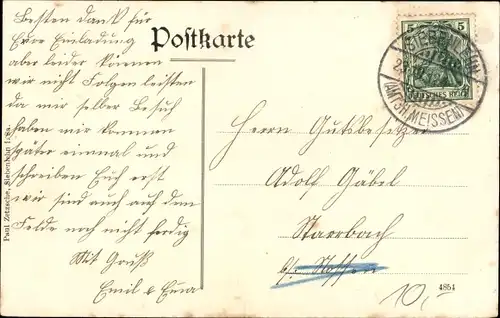 Besten Dank für
Eure Einladung
aber leider können
wir nicht Folgen leisten
da wir selber Besuch
haben wir kommen
später einmal und
schreiben Euch erst
wir sind auch auf dem
Felde noch nicht ferdig
Mit Gruß
Emil & Ema
Postkarte
5 5
SIEBENLEHN
(AMTSH. MEISSEN)
DEUTSCHES REICH
Herrn Gutsbesitzer
Adolf Gäbel
Starrbach
b/. Nossen
Paul Zetzsche, Siebenlehn i. Sa.
4864
10,-